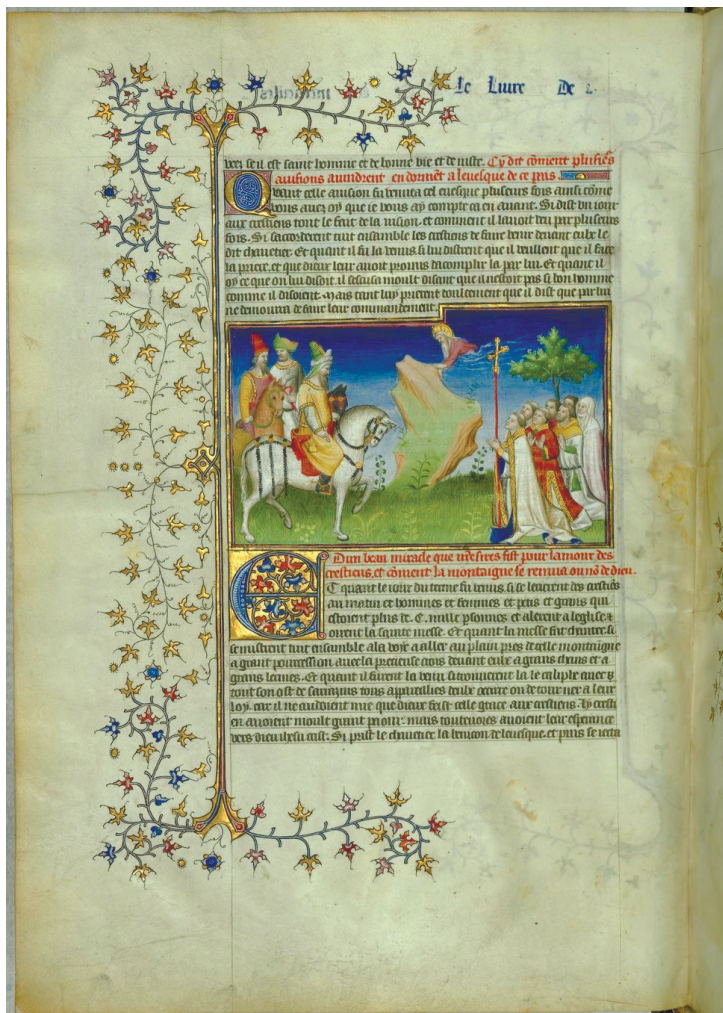 Le Livre De
veez se il est saint homme et de bonne vie et de juste. Cy dit coment plusieurs
avisions avindrent en donnēt a levesque de ce pais.
Quant celle avision fu venuta cel evesque pluseurs fois ainsi cōme
vous avez oy que je vous ay compte ca en avant. Si dist un jour
aux crestiens tout le fait de la vision. et comment il lavoit veu par pluseurs
fois. Si sacorderent tuit ensamble les crestiens de faire venir devant eulx le
dit chavetier. Et quant il fu la venus. si lui distrent que il veullent que il face
la priere. et que dieux leur avoit promis dacomplir la par lui. Et quant il
oy ce que on lui disoit. il sescusa moult disant que il nestoit pas si bon homme
comme il disoient. Mais tant luy prierent doulcement que il dist que par lui
ne demourra de faire leur commandement.
Dun beau miracle que ndesires fist pour lamour des
crestiens. et cōment la montaigne se remua ou nō de dieu.
Et quant le jour du terme fu venus. si se leverent des crestiēs
au matin et hommes et femmes et petis et grans qui
estoient plus de. C. mille psonnes et alerent a leglise. et
oirent la sainte messe. Et quant la messe fut chantee. si
se mistrent tuit ensamble a la voye a aller au plain pres de celle montaigne
a grant pourcession avec la precieuse crois devant eulx a grans chans et a
grans lermes. Et quant il furent la venu si trouverent la le caliphe avec
tout son ost de sarrazins tous appareillies deulx occire ou de tourner a leur
loy. car il ne cuidoient mie que dieux feist celle grace aux crestiens. Ly cresti
en avoient moult grant paour. mais toutevoies avoient leur esperance
vers dieu ihesu crist. Si prist le chavetier la beneicon de levesque. et puis se jecta